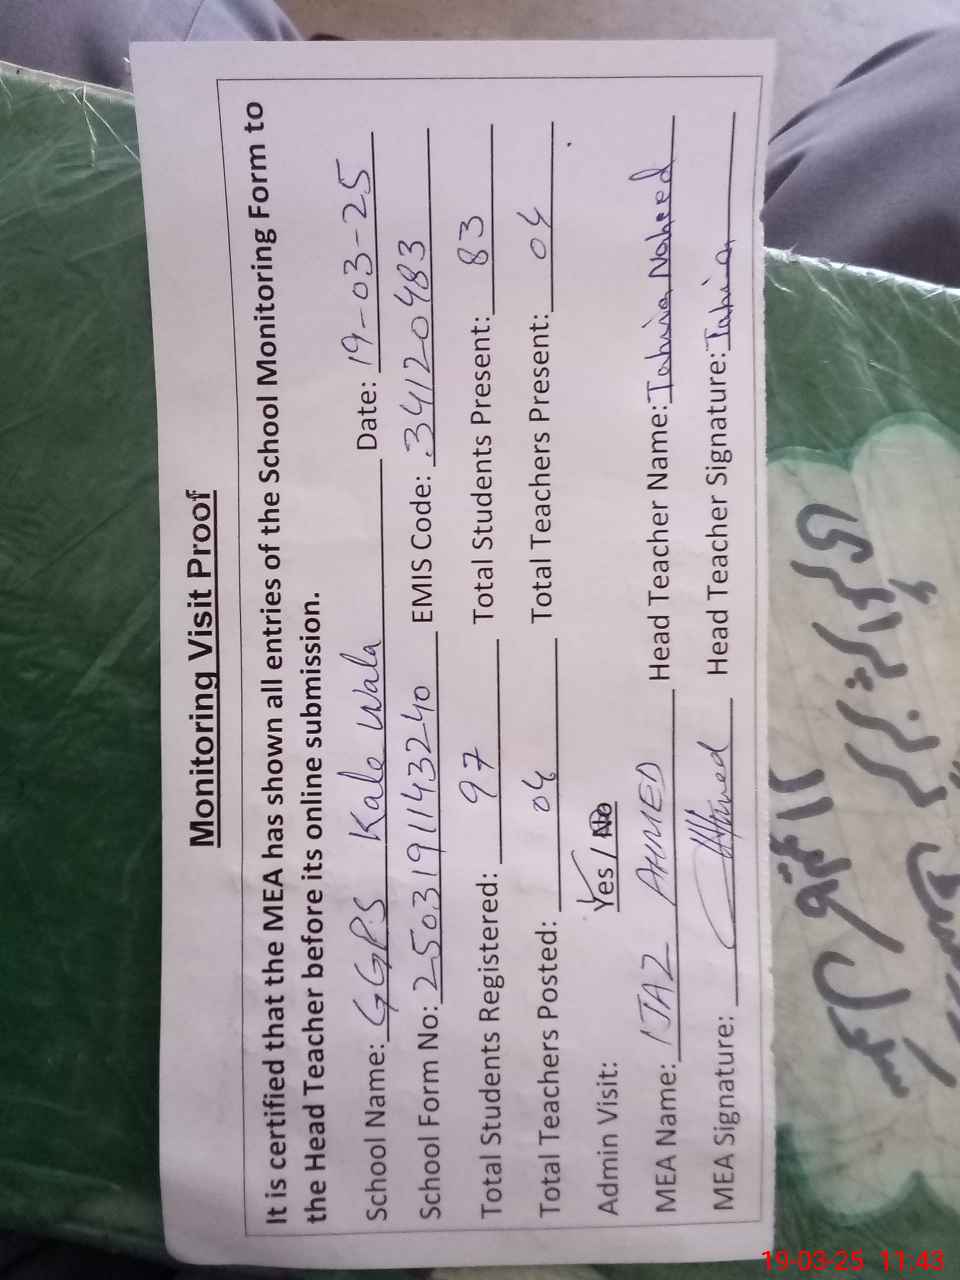 Monitoring Visit Proof
It is certified that the MEA has shown all entries of the School Monitoring Form to
the Head Teacher before its online submission.
School Name: GGPS Kale Wala Date: 19-03-25
School Form No: 2503191143240 EMIS Code: 34120483
Total Students Registered: 97 Total Students Present: 83
Total Teachers Posted: 04 Total Teachers Present: 04
Admin Visit: Yes / No
MEA Name: IJAZ AHMED Head Teacher Name: Tahira Naheed
MEA Signature: Ahmed Head Teacher Signature: Tahira
19-03-25 11:43